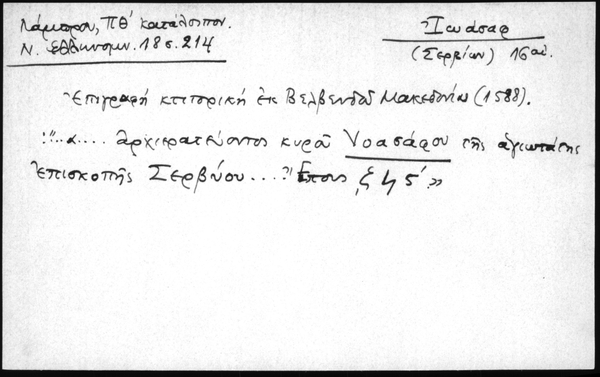 Λάμπρου, ΠΘ´ κατάλοιπον.
Ν. Ἑλληνομν. 18 σ. 214
Ἰωάσαφ
(Σερβίων) 16 αἰ.
Ἐπιγραφή κτιτορική ἐκ Βελβενδοῦ Μακεδονίας (1588).
:"..α.... ἀρχιερατεύοντος κυροῦ Υοασάφου τῆς ἁγιωτάτης
ἐπισκοπῆς Σερβύου....?" Ἔτους ζ 4 ς´ »